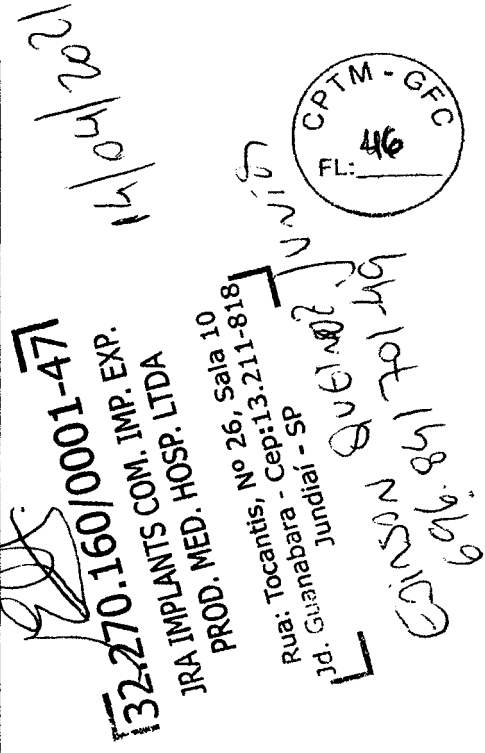 14/04/2021
32.270.160/0001-47
JRA IMPLANTS COM. IMP. EXP.
PROD. MED. HOSP. LTDA
Rua: Tocantis, Nº 26, Sala 10
Jd. Guanabara - Cep:13.211-818
Jundiaí - SP
Edinson Queiroz Junior
696.841 701-49
CPTM - GFC
FL: 46